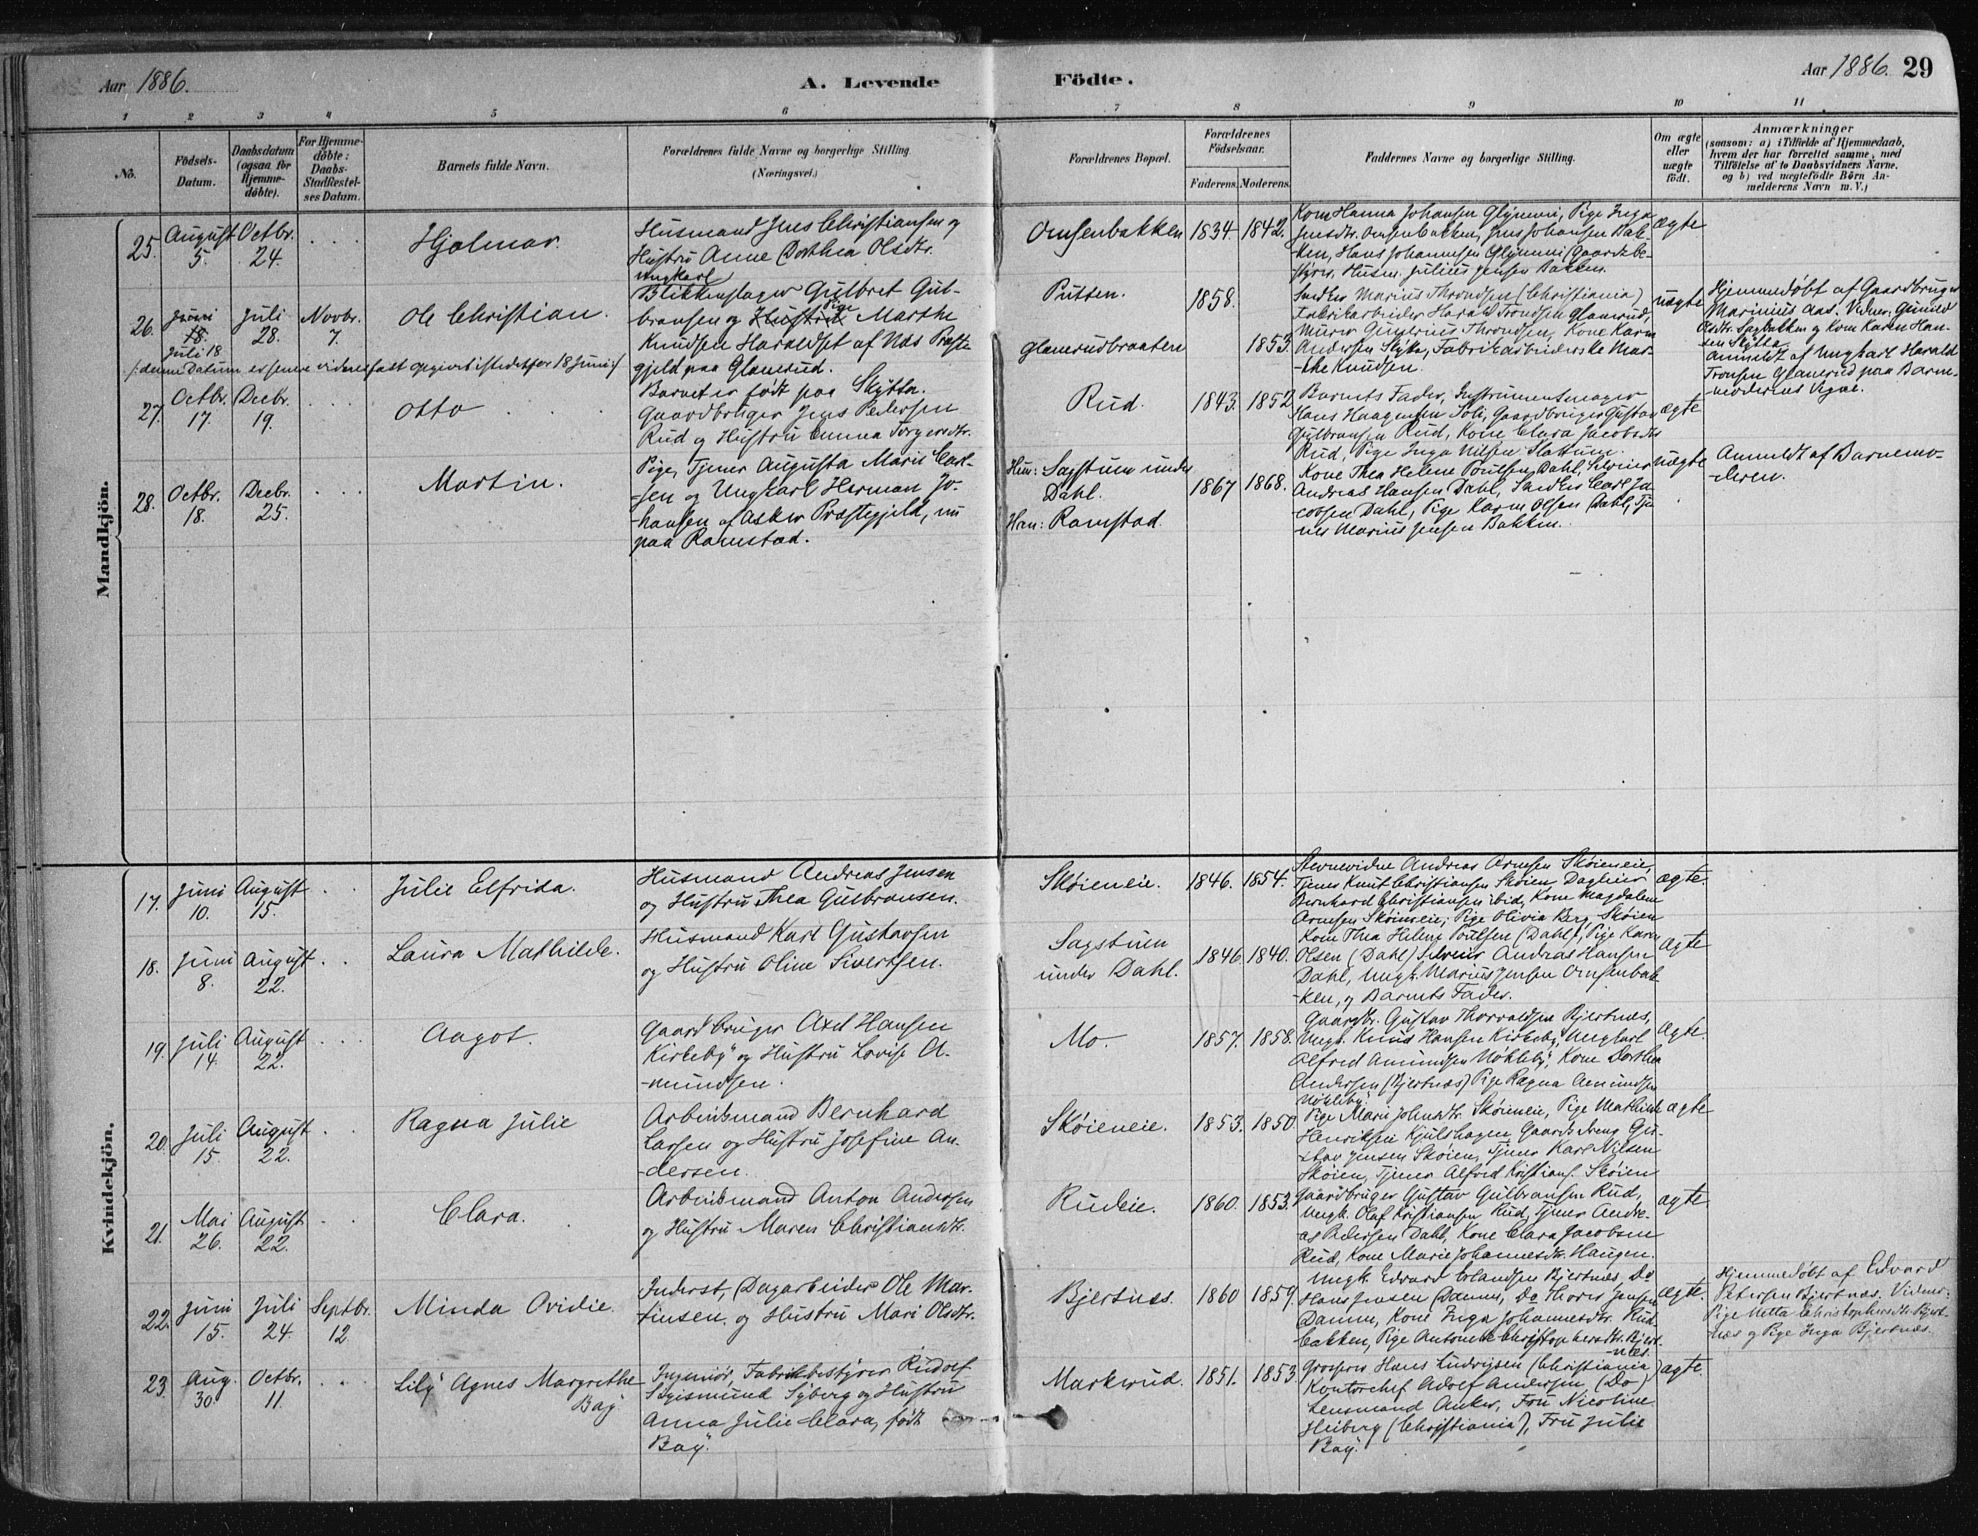 Aar 1886. A. Levende Födte. Aar 1886. 29
1 2 3 4 5 6 7 8 9 10 11
No.
Födsels-
Datum.
Daabsdatum
(ogsaa for
Hjemme-
döbte).
For Hjemme-
döbte:
Daabs-
Stadfæstel-
ses Datum.
Barnets fulde Navn.
Forældrenes fulde Navne og borgerlige Stilling
(Næringsvei.)
Forældrenes Bopæl.
Forældrenes
Födselsaar.
Faderens. Moderens.
Faddernes Navne og borgerlige Stilling.
Om ægte
eller
uægte
født.
Anmærkninger
(saasom: a) i Tilfælde af Hjemmedaab,
hvem der har forrettet samme, med
Tilföielse af to Daabsvidners Navne,
og b) ved uægtefödte Börn An-
melderens Navn m. V.)
Mandkjön.
25. August 5. Octbr. 24. Hjalmar.
Husmand Jens Christiansen og
Hustru Anne Dorthea Olsdtr.
Omsenbakken 1834 1842.
Kone Hanna Johansen Glynnei, Pige Inga
Jensdtr. Omsenbakken, Jens Johansen Bak-
ken, Hans Johannesen Glynnei (Gaardsbe-
styrer, Husm. Julius Jensen Bakken.
ægte
26. Juni 18. Juli 18 Juli 28. Novbr. 7. Ole Christian.
Ungkarl
Blikkenslager Gulbret Gul-
bransen og Hustru Pige Marthe
Knudsen Haraldset af Næs Præste
gjeld paa Glanerud.
Barnet er født paa Skytta.
/: denne Datum er senere vidensfast opgivet istedetfor 18 Juni :/
Putten. 1858.
Glanerudbraaten 1853.
Snedker Marius Throndsen (Christiania)
Fabrikarbeider Harald Trondsen Glanerud,
Murer Gingerius Throndsen, Kone Karen
Andersen Skytta, Fabrikarbeiderske Mar-
the Knudsen.
uægte
Hjemmedøbt af Gaardbruger
Marinius Aas. Vidner: Gunild
Olsdtr. Sagbakken og Kone Karen Han-
sen Skytta.
Anmeldt af Ungkarl Harald
Tronsen Glanerud paa Barne-
moderens Vegne.
27. Octbr. 17. Decbr. 19. Otto
Gaardbruger Jens Pedersen
Rud og Hustru Emma Torgersdtr.
Rud. 1843. 1852.
Barnets Fader, Instrumentmager
Hans Haagensen Soli, Gaardbruger Gustav
Gulbransen Rud, Kone Clara Jacobsdtr.
Rud, Pige Inga Nilsen Slattum.
ægte
28. Octbr. 18. Decbr. 25. Martin.
Pige, Tjener Augusta Marie Carl-
sen og Ungkarl Herman Jo-
hansen af Asker Præstegjeld, nu
paa Ramstad.
Hun: Sagstuen under
Dahl.
Han: Ramstad.
1867 1868.
Kone Thea Helene Poulsen Dahl, Selveier
Andreas Hansen Dahl, Snedker Carl Ja-
cobsen Dahl, Pige Karen Olsen Dahl, Tje-
ner Marius Jensen Bakken.
uægte
Anmeldt af Barnemo-
deren.
Kvindekjön.
17. Juni 10. August 15. Julie Elfrida.
Husmand Andreas Jensen
og Hustru Thea Gulbransen.
Skøieneie. 1846. 1854.
Stevnevidne Andreas Arnesen Skøieneie,
Tjener Knut Christiansen Skøien, Dagleier
Bernhard Christiansen ibid, Kone Magdalene
Arnesen Skøieneie, Pige Olivia Berg, Skøien
ægte.
18. Juni 8. August 22. Laura Mathilde.
Husmand Karl Gustavsen
og Hustru Oline Sivertsen.
Sagstuen
under Dahl.
1846. 1840.
Kone Thea Helene Poulsen (Dahl), Pige Karen
Olsen (Dahl) Selveier Andreas Hansen
Dahl, Ungk. Marius Jensen Omsenbak-
ken, og Barnets Fader.
ægte
19. Juli 14. August 22. Aagot.
Gaardbruger Axel Hansen
Kirkeby og Hustru Lovise A-
mundsen.
Mo. 1857. 1858.
Gaardbr. Gustav Thorvaldsen Bjertnæs,
Ungk. Knud Hansen Kirkeby, Ungkarl
Alfred Amundsen Nøkleby, Kone Dorthea
Andersen (Bjertnæs) Pige Ragna Amundsen
Nøkleby.
ægte.
20. Juli 15. August 22. Ragna Julie
Arbeidsmand Bernhard
Larsen og Hustru Josefine An-
dersen.
Skøieneie. 1853. 1850.
Pige Marie Johnsdtr. Skøieneie, Pige Mathilde
Henriksen Kjulshagen Gaardsdreng Gu-
stav Jensen Skøien, Tjener Karl Nilsen
Skøien, Tjener Alfred Kristians. Skøien
ægte
21. Mai 26. August 22. Clara.
Arbeidsmand Anton Andersen
og Hustru Maren Christiansdtr.
Rudeie. 1860. 1853.
Gaardbruger Gustav Gulbransen Rud,
Ungk. Olaf Kristiansen Rud, Tjener Andre-
as Pedersen Dahl, Kone Clara Jacobsen
Rud, Kone Marie Johannesdtr. Haugen.
ægte.
22. Juni 15. Juli 24. Septbr. 12. Minda Ovidie.
Inderst, (Dagarbeider Ole Mar-
tinsen, og Hustru Mari Olsdtr.
Bjertnæs 1860 1859.
Ungk. Edvard Erlandsen Bjertnæs, Do
Hans Jensen Damm, Do Thorer Jensen
Damm, Kone Inga Johannesdtr. Rud-
bakken, Pige Antonette Christophersdtr. Bjert-
næs.
ægte.
Hjemmedøbt af Edvard
Petersen Bjertnæs. Vidner:
Pige Netta Christophersdtr. Bjert-
næs og Pige Inga Bjertnæs.
23. Aug. 30. Octbr. 11. Lily Agnes Margrethe
Bay
Ingeniør, Fabrikbestyrer Rudolf
Sigismund Syberg og Hustru
Anna Julie Clara, født
Bay.
Markerud. 1851. 1853
Grosserer Hans Ludvigsen (Christiania)
Kontorchef Adolf Andersen (Do)
Lensmand Anker, Fru Nicoline
Heiberg (Christiania), Fru Julie
Bay.
ægte.